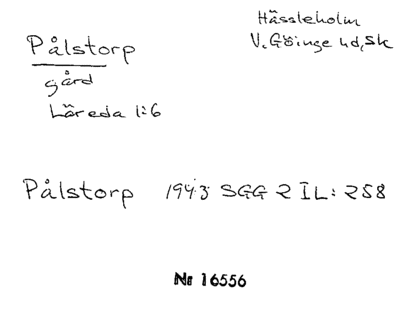 Pålstorp
gård
Läreda 1:6
Hässleholm
V. Göinge hd, Sk
Pålstorp 1943 SGG 2 IL: 258
Nr 16556